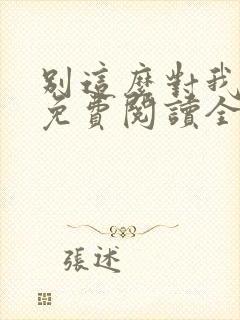 別這麼對我
免費閱讀全
張述